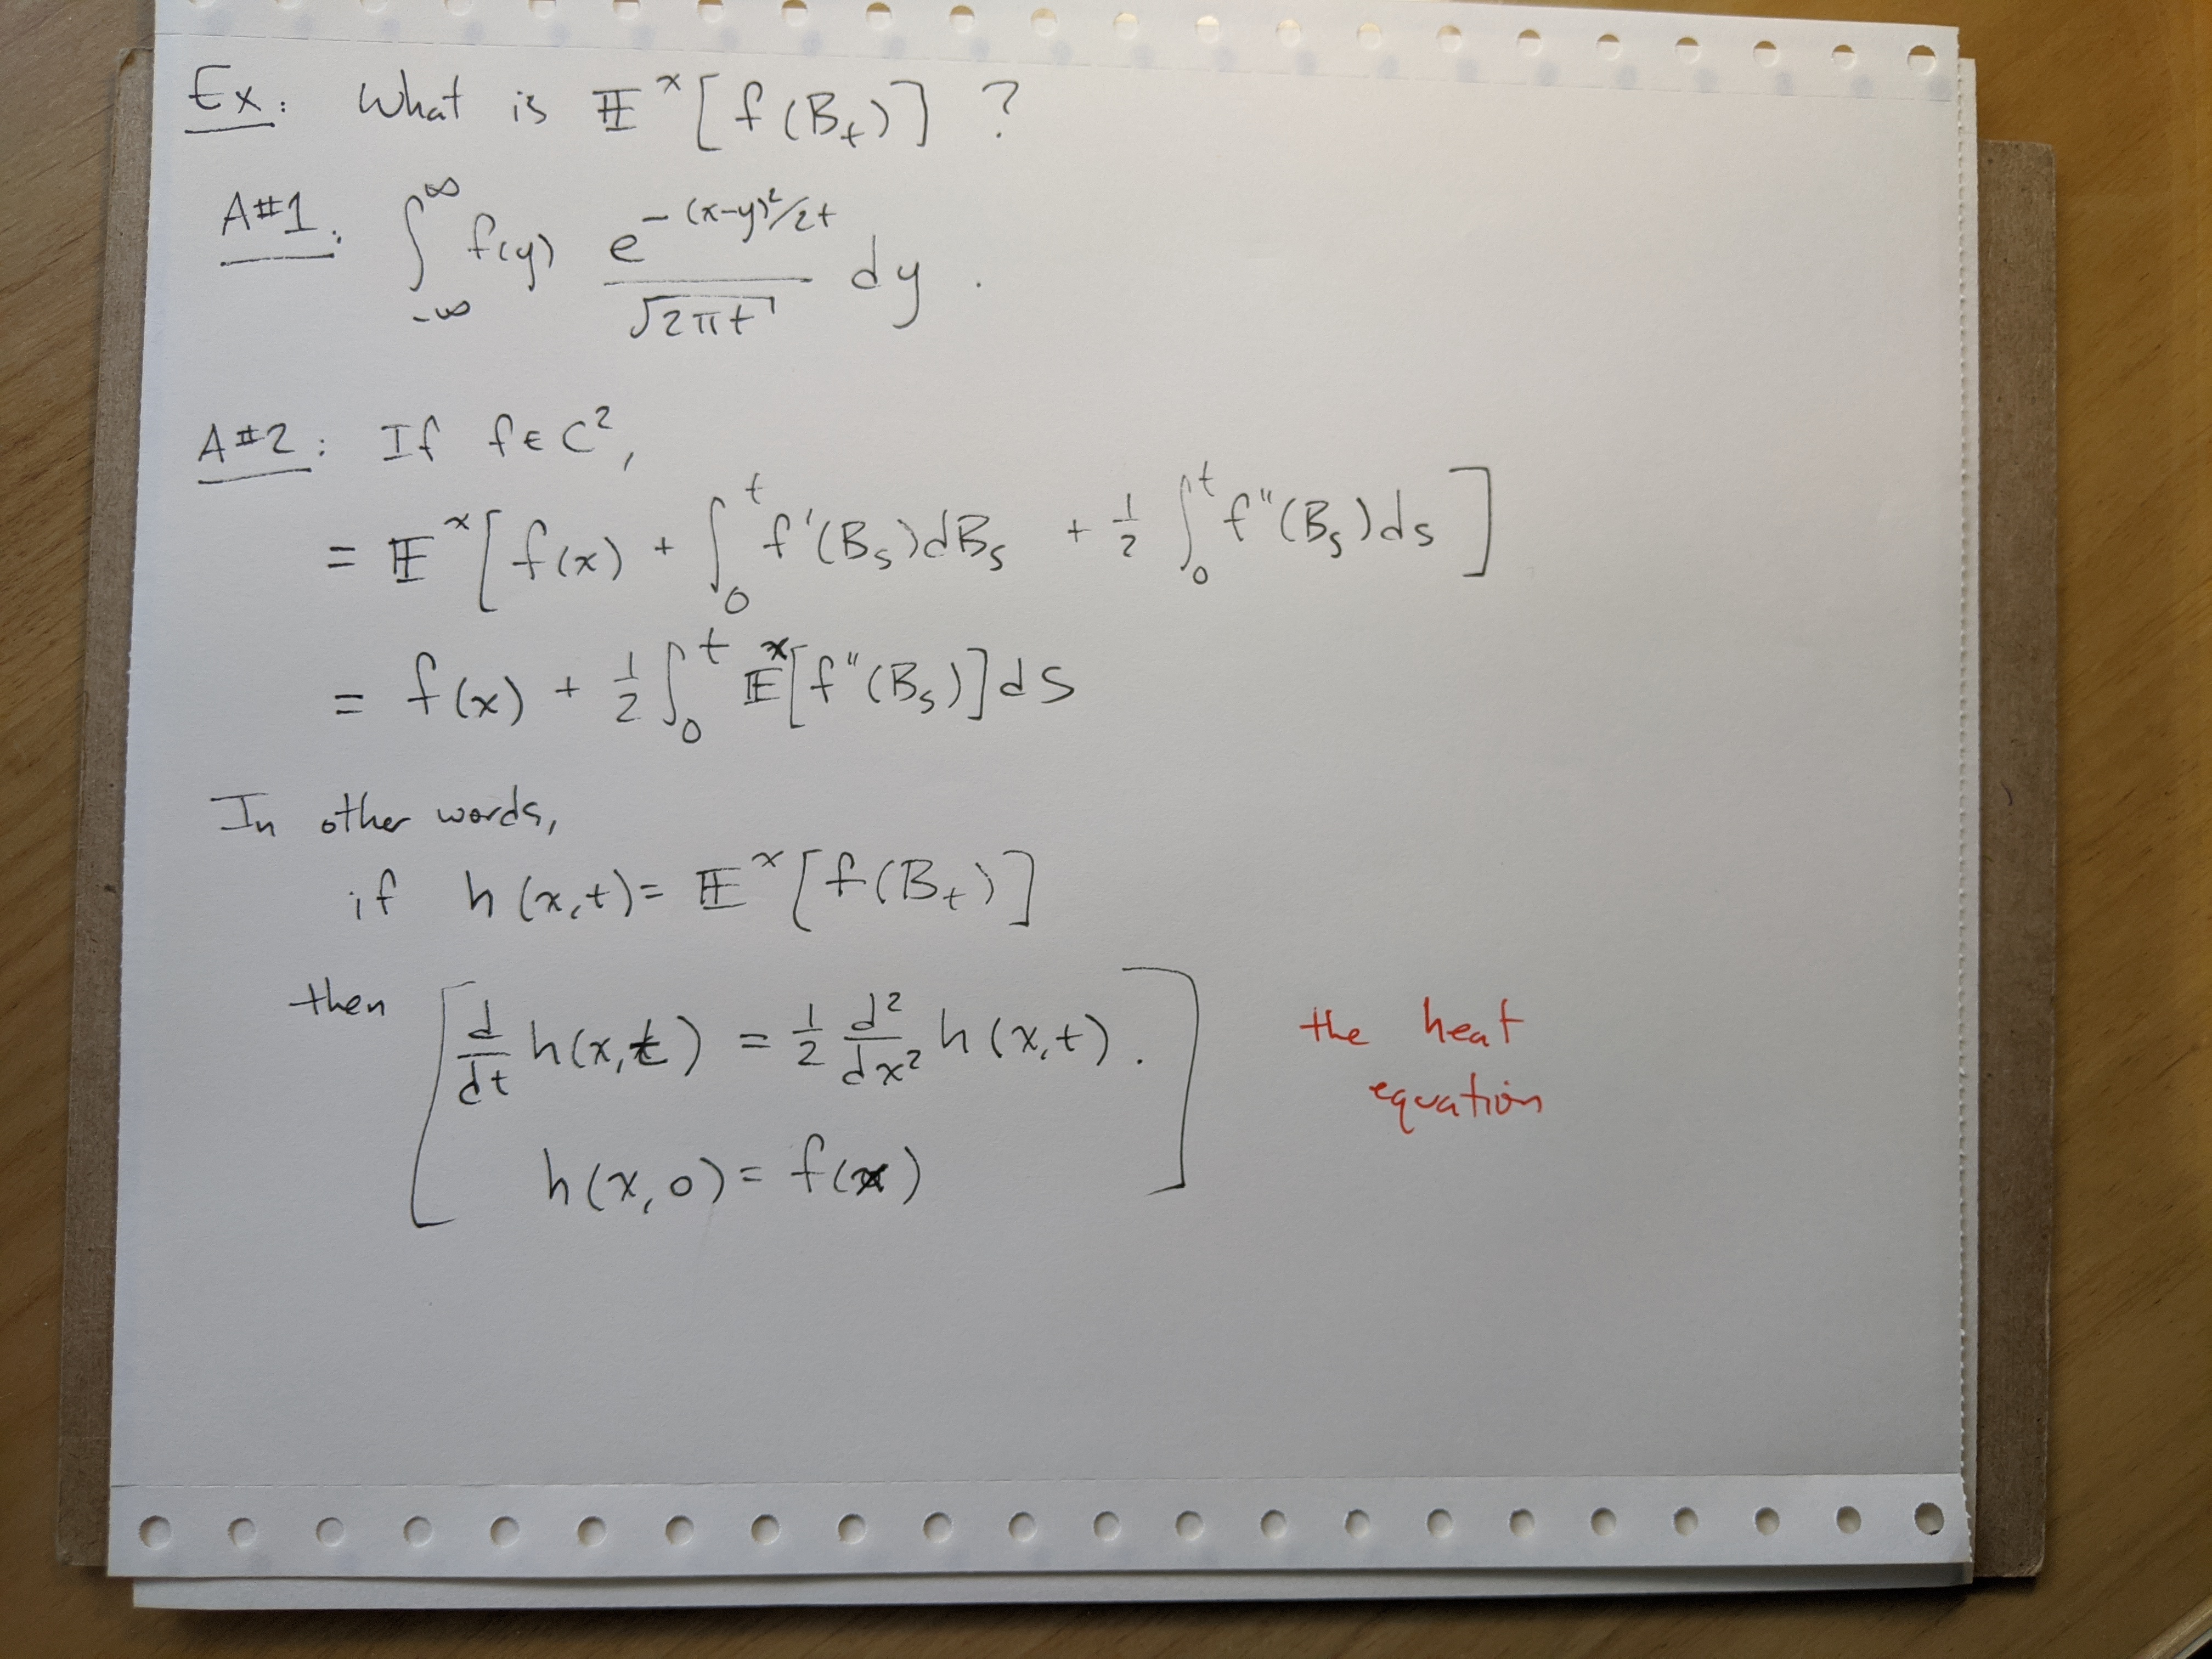 Ex: What is 𝔼ˣ[f(Bₜ)] ?
A#1: ∫_{-∞}^{∞} f(y) e^{-(x-y)²/2t} / √(2πt) dy .
A#2: If f ∈ C²,
= 𝔼ˣ[f(x) + ∫₀ᵗ f'(Bₛ)dBₛ + ½ ∫₀ᵗ f''(Bₛ)ds]
= f(x) + ½ ∫₀ᵗ 𝔼ˣ[f''(Bₛ)]ds
In other words,
if h(x,t) = 𝔼ˣ[f(Bₜ)]
then [ d/dt h(x,t) = ½ d²/dx² h(x,t) .
h(x,0) = f(x) ]
the heat
equation